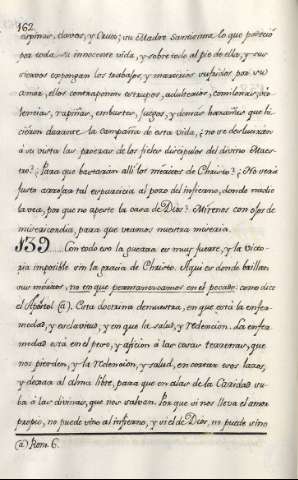 162
espinas, clavos, y Cruz; su Madre Santissima lo que padeciò
por toda su innocente vida, y sobre todo al pie de ella, y sus
siervos expongan los trabajos, y martirios sufridos por su
amor, ellos contraponen estupros, adulterios, comilonas, vio
lencias, rapiñas, embustes, juegos, y demàs hazañas que hi
cieron durante la campaña de esta vida, ¿no se desluciràn
à su vista las proezas de los fieles discipulos del divino Maes-
tro?; Para que bastaràn allì los mèritos de Christo? ¿No serà
justo arrojar tal al pozo del infierno, donde nadie
la vea, por que no apeste la casa de Dios? Mirenos con ojos de
misericordia, para que veamos nuestra miseria.
N39 Con todo eso la guerra es muy fuerte, y la victo-
ria imposible sin la gracia de Christo. Aqui es donde brillan
sus mèritos, no en que permanezcamos en el pecado, como dice
el Apòstol (a). Esta doctrina demuestra, en què està la enfer-
medad, y esclavitud, y en què la salud, y redencion. La enfer-
medad està en el peso, y aficion à las cosas terrenas, que
nos pierden, y la redencion, y salud, en cortar esos lazos,
y dexar al alma libre, para que en alas de la Caridad su-
ba à las divinas, que nos salvan. Por que si nos lleva el amor
proprio, no puede sino al infierno, y si el de Dios, no puede sino
(a) Rom. 6.